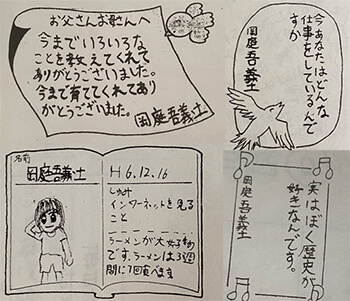 お父さんお母さんへ
今までいろいろな
ことを教えてくれて
ありがとうございました。
今まで育ててくれてあり
がとうございました。
岡庭吾義士
今あなたはどんな
仕事をしているんで
すか
岡庭吾義士
名前
岡庭吾義士
H6.12.16
しゅみ
インターネットを見る
こと
ラーメンが大好物
です。ラーメンは3週
間に1回食べます
実はぼく歴史が
好きなんです。
岡庭吾義士